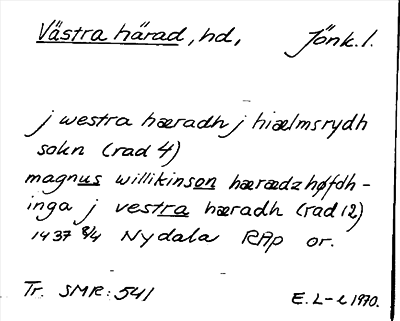 Västra härad, hd, Jönk. l.
j westra hæradh j hiælmsrydh
sokn (rad 4)
magnus willikinson hærædzhøfdh-
inga j vestra hæradh (rad 12)
1437 8/4 Nydala RAp or.
Tr. SMR: 541 E. L-l 1970.